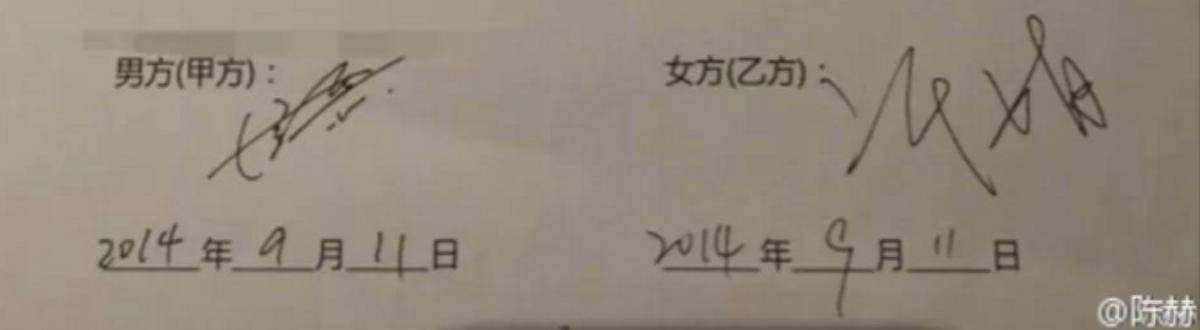 男方(甲方)： 女方(乙方)：
2014年9月11日 2014年9月11日
@陈赫